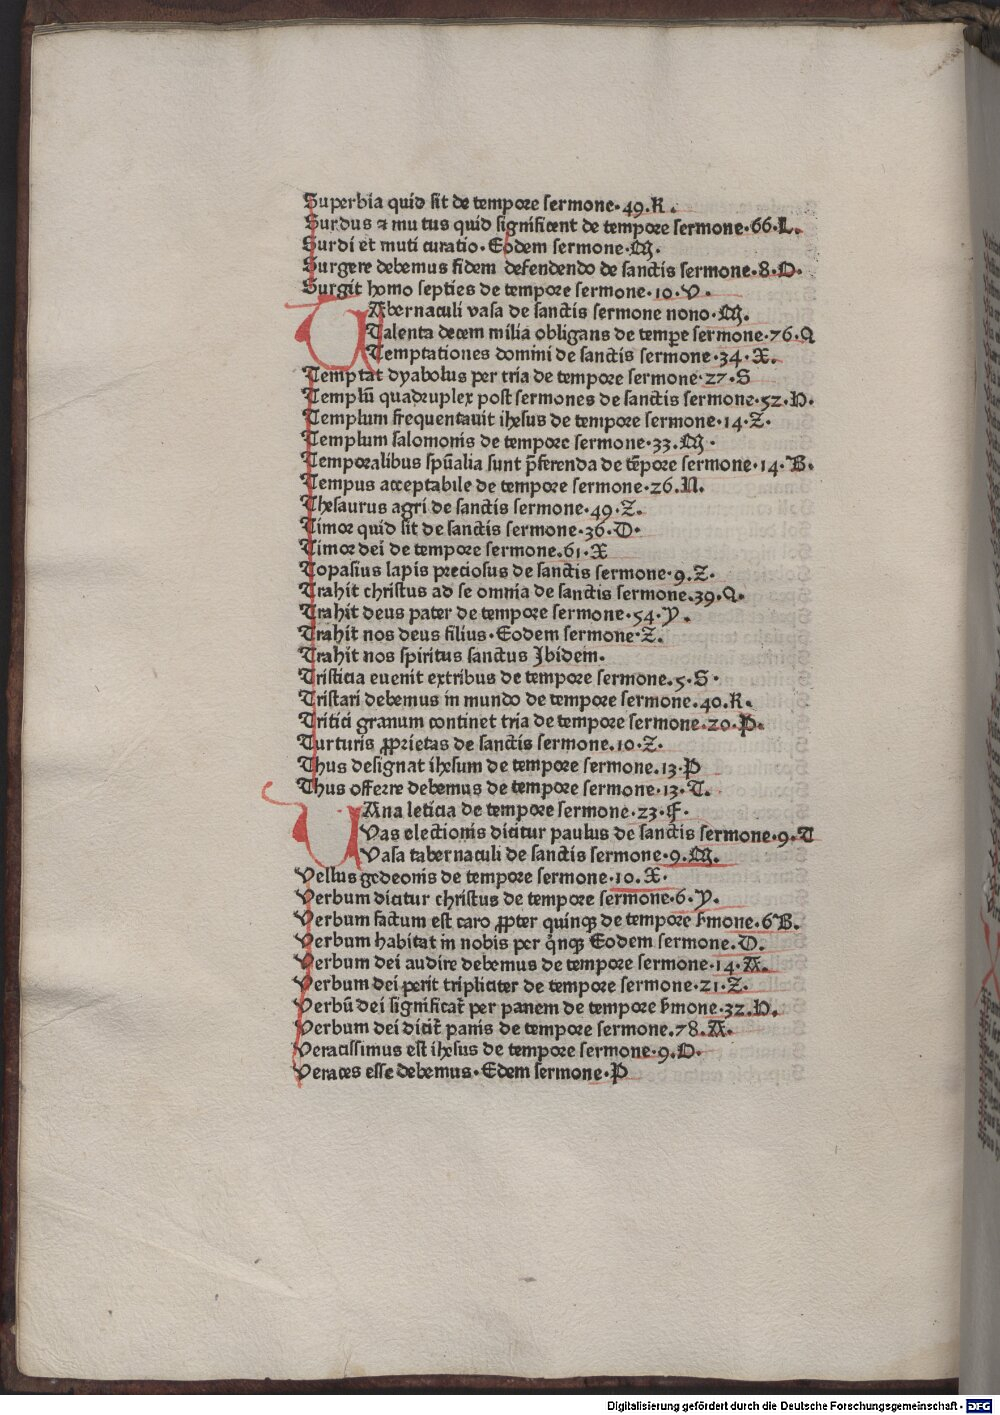 Superbia quid sit de tempore sermone·49.K.
Surdus ⁊ mu tus quid significent de tempore sermone·66·L.
Surdi et muti curatio·Eodem sermone·M.
Surgere debemus fidem defendendo de sanctis sermone·8·O·
Surgit homo septies de tempore sermone·10·V·
TAbernaculi vasa de sanctis sermone nono·M.
Talenta decem milia obligans de tempe sermone·76·Q
Temptationes domini de sanctis sermone·34·X.
Temptat dyabolus per tria de tempore sermone·27·S
Templū quadruplex post sermones de sanctis sermone·52·N.
Templum frequentauit ihesus de tempore sermone·14·Z·
Templum salomonis de tempore sermone·33·M·
Temporalibus spūalia sunt p̄ferenda de tēpore sermone·14·B·
Tempus acceptabile de tempore sermone·26.N.
Thesaurus agri de sanctis sermone·49·Z.
Timor quid sit de sanctis sermone·36·D·
Timor dei de tempore sermone.61·X
Topasius lapis preciosus de sanctis sermone·9.Z·
Trahit christus ad se omnia de sanctis sermone.39·Q.
Trahit deus pater de tempore sermone·54·Y.
Trahit nos deus filius·Eodem sermone·Z.
Trahit nos spiritus sanctus Ibidem.
Tristicia euenit extribus de tempore sermone.5·S·
Tristari debemus in mundo de tempore sermone.40.K.
Tritici granum continet tria de tempore sermone·20·P.
Turturis ꝓprietas de sanctis sermone.10·Z·
Thus designat ihesum de tempore sermone.13·P
Thus offerre debemus de tempore sermone·13·T.
VAna leticia de tempore sermone·23·F·
Vas electionis dicitur paulus de sanctis sermone·9·T
Vasa tabernaculi de sanctis sermone·9.M.
Vellus gedeonis de tempore sermone·10.X·
Verbum dicitur christus de tempore sermone·6·Y.
Verbum factum est caro ꝓpter quinqꝫ de tempore ẜmone·6·B.
Verbum habitat in nobis per q̇nqꝫ Eodem sermone.D.
Verbum dei audire debemus de tempore sermone·14·A.
Verbum dei perit tripliciter de tempore sermone·21·Z·
Verbū dei significat᷑ per panem de tempore ẜmone·32.N.
Verbum dei dicit᷑ panis de tempore sermone.78.A.
Veracissimus est ihesus de tempore sermone·9.O·
Veraces esse debemus·Edem sermone·P
Digitalisierung gefördert durch die Deutsche Forschungsgemeinschaft · DFG